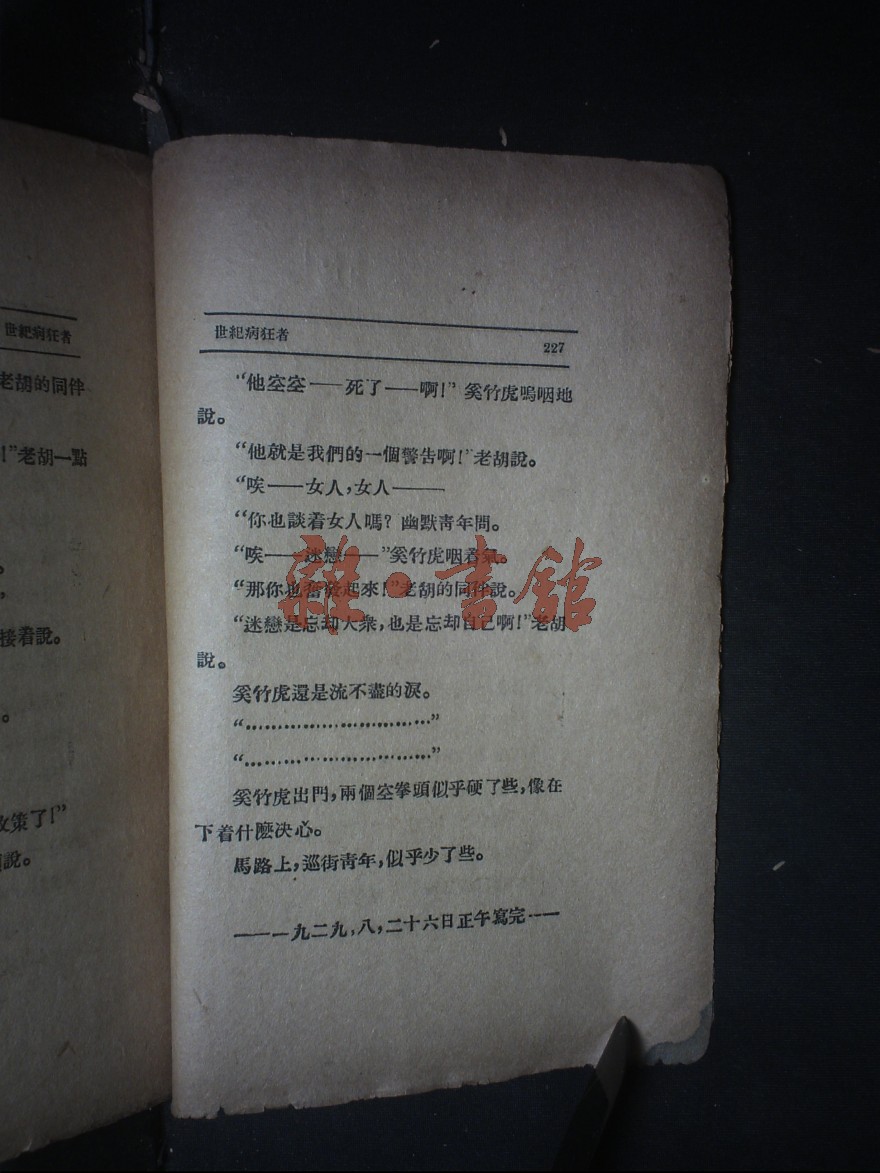 世紀病狂者
老胡的同伴
!”老胡一點
接着說。
。
政策了!”
說。
世紀病狂者 227
“他空空——死了——啊!”奚竹虎嗚咽地
說。
“他就是我們的一個警告啊!”老胡說。
“唉——女人,女人———
“你也談着女人嗎?幽默靑年問。
“唉——迷戀——”奚竹虎咽着氣。
“那你也奮發起來!”老胡的同伴說。
“迷戀是忘却大衆,也是忘却自己啊!”老胡
說。
奚竹虎還是流不盡的淚。
“……………………………”
“……………………………”
奚竹虎出門,兩個空拳頭似乎硬了些,像在
下着什麽决心。
馬路上,巡街靑年,似乎少了些。
——一九二九,八,二十六日正午寫完——
雜·書館